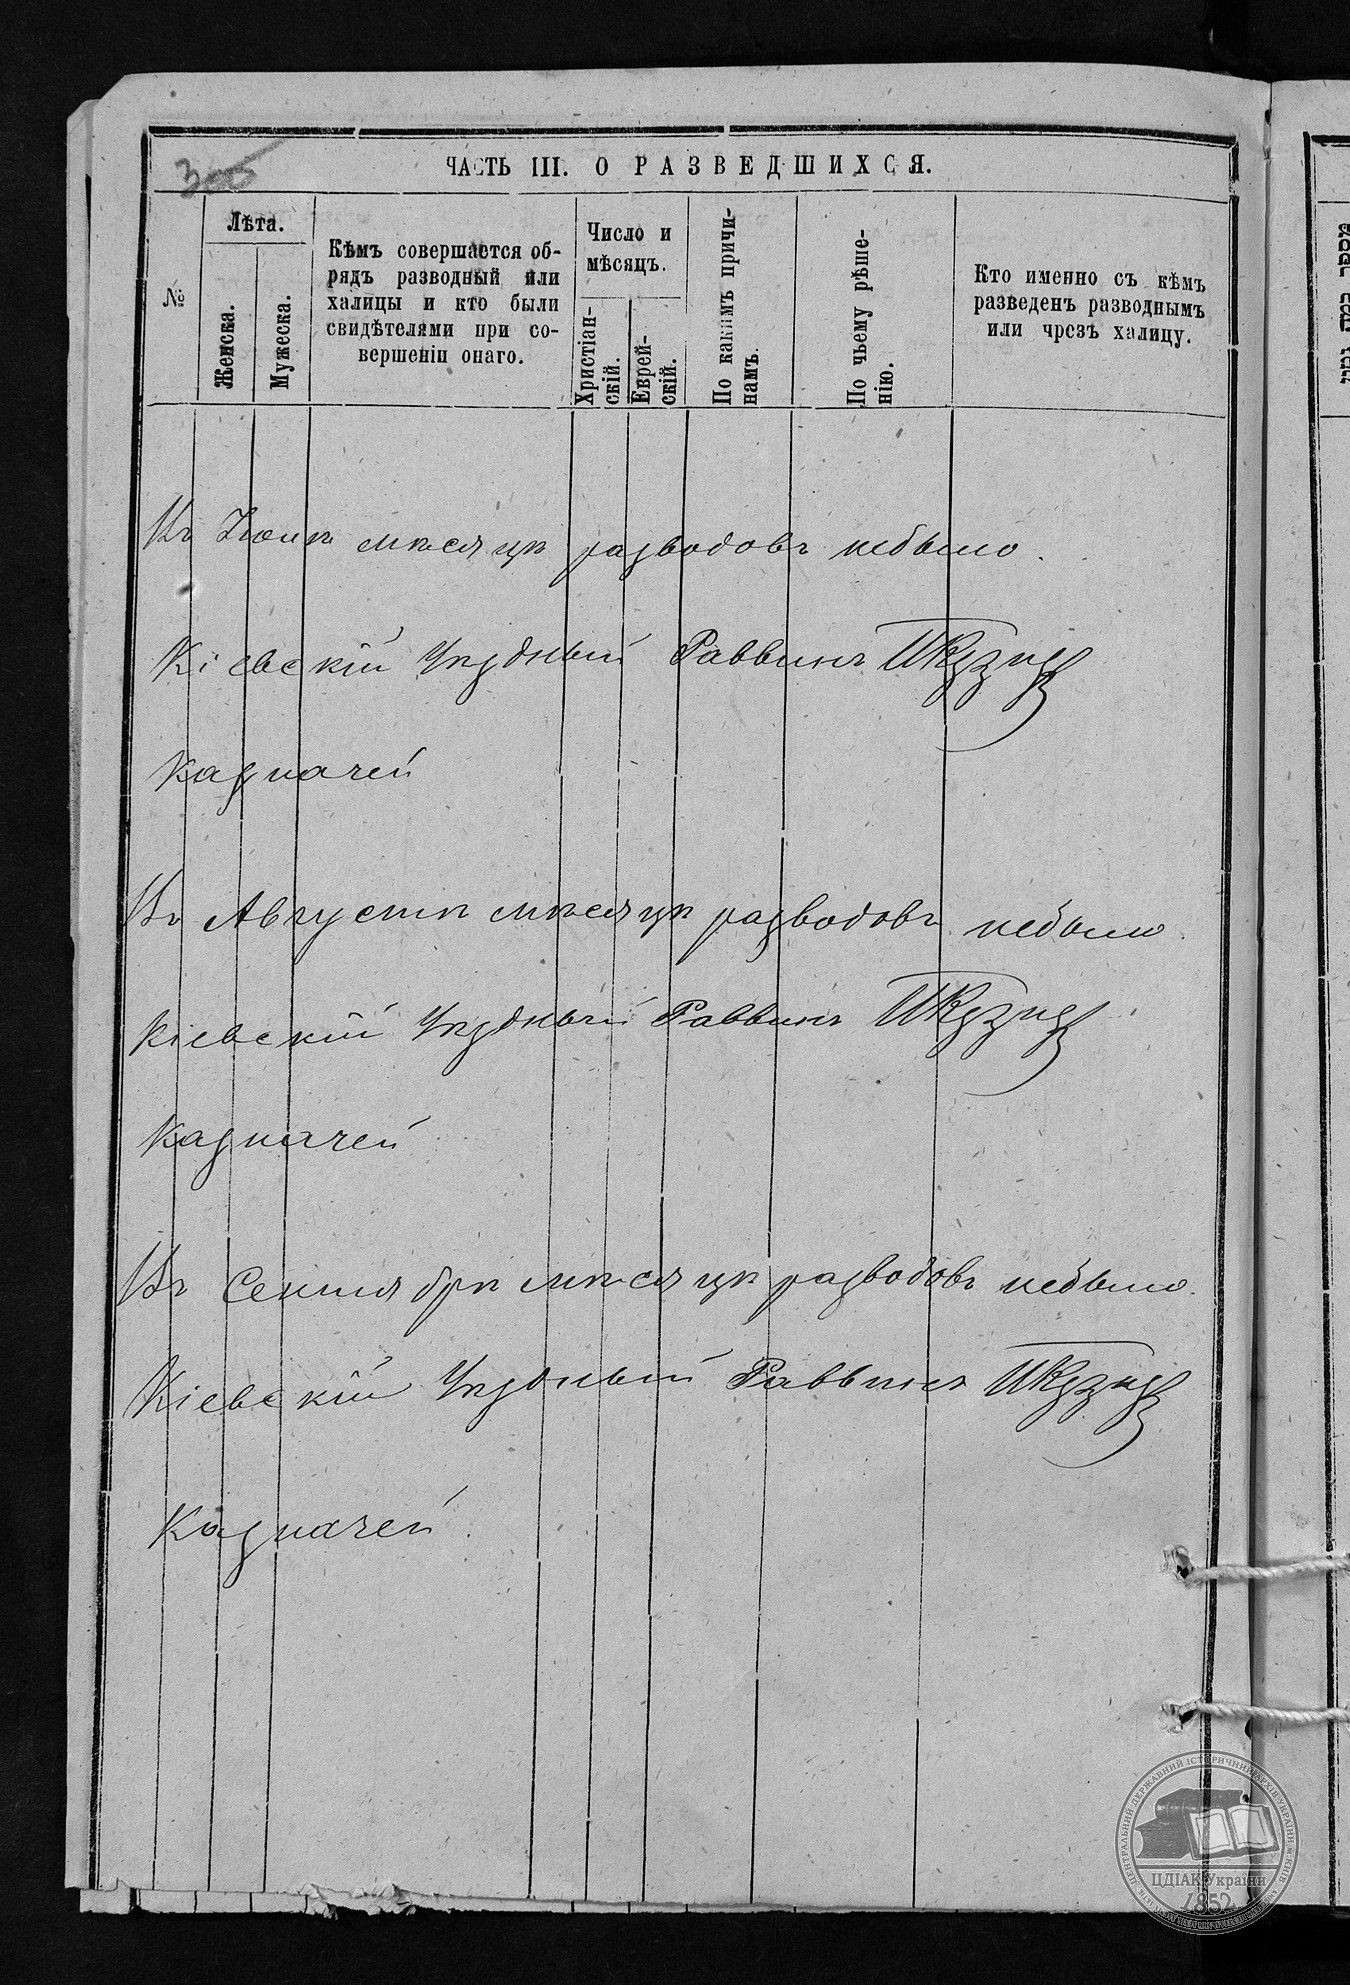 305
ЧАСТЬ III. О РАЗВЕДШИХСЯ.
№
Лѣта.
Женска.
Мужеска.
Кѣмъ совершается об-
рядъ разводный или
халицы и кто были
свидѣтелями при со-
вершеніи онаго.
Число и
мѣсяцъ.
Христіан-
скій.
Еврей-
скій.
По какимъ причи-
намъ.
По чьему рѣше-
нію.
Кто именно съ кѣмъ
разведенъ разводнымъ
или чрезъ халицу.
Въ мѣсяцѣ разводовъ небыло.
Кіевскій Уѣздный Раввинъ
Казначей
Въ Августѣ мѣсяцѣ разводовъ небыло.
Кіевскій Уѣздный Раввинъ
Казначей
Въ Сентябрѣ мѣсяцѣ разводовъ небыло.
Кіевскій Уѣздный Раввинъ
Казначей.
ЦЕНТРАЛЬНИЙ ДЕРЖАВНИЙ ІСТОРИЧНИЙ АРХІВ УКРАЇНИ, м. КИЇВ
ЦДІАК України
1852